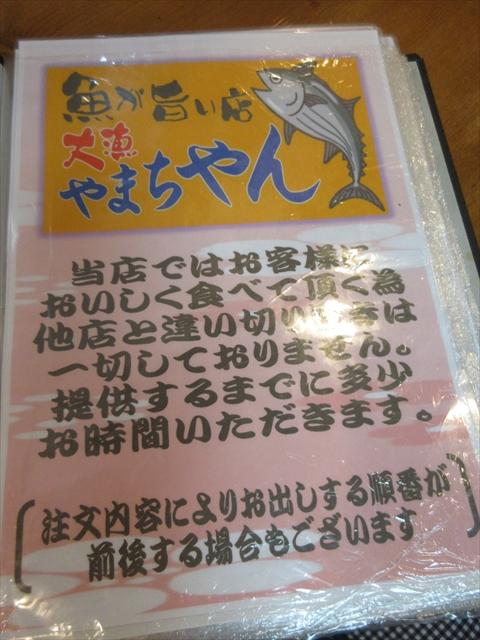 魚が旨い店
大漁
やまちゃん
当店ではお客様に
おいしく食べて頂く為
他店と違い切り置きは
一切しておりません。
提供するまでに多少
お時間いただきます。
注文内容によりお出しする順番が
前後する場合もございます